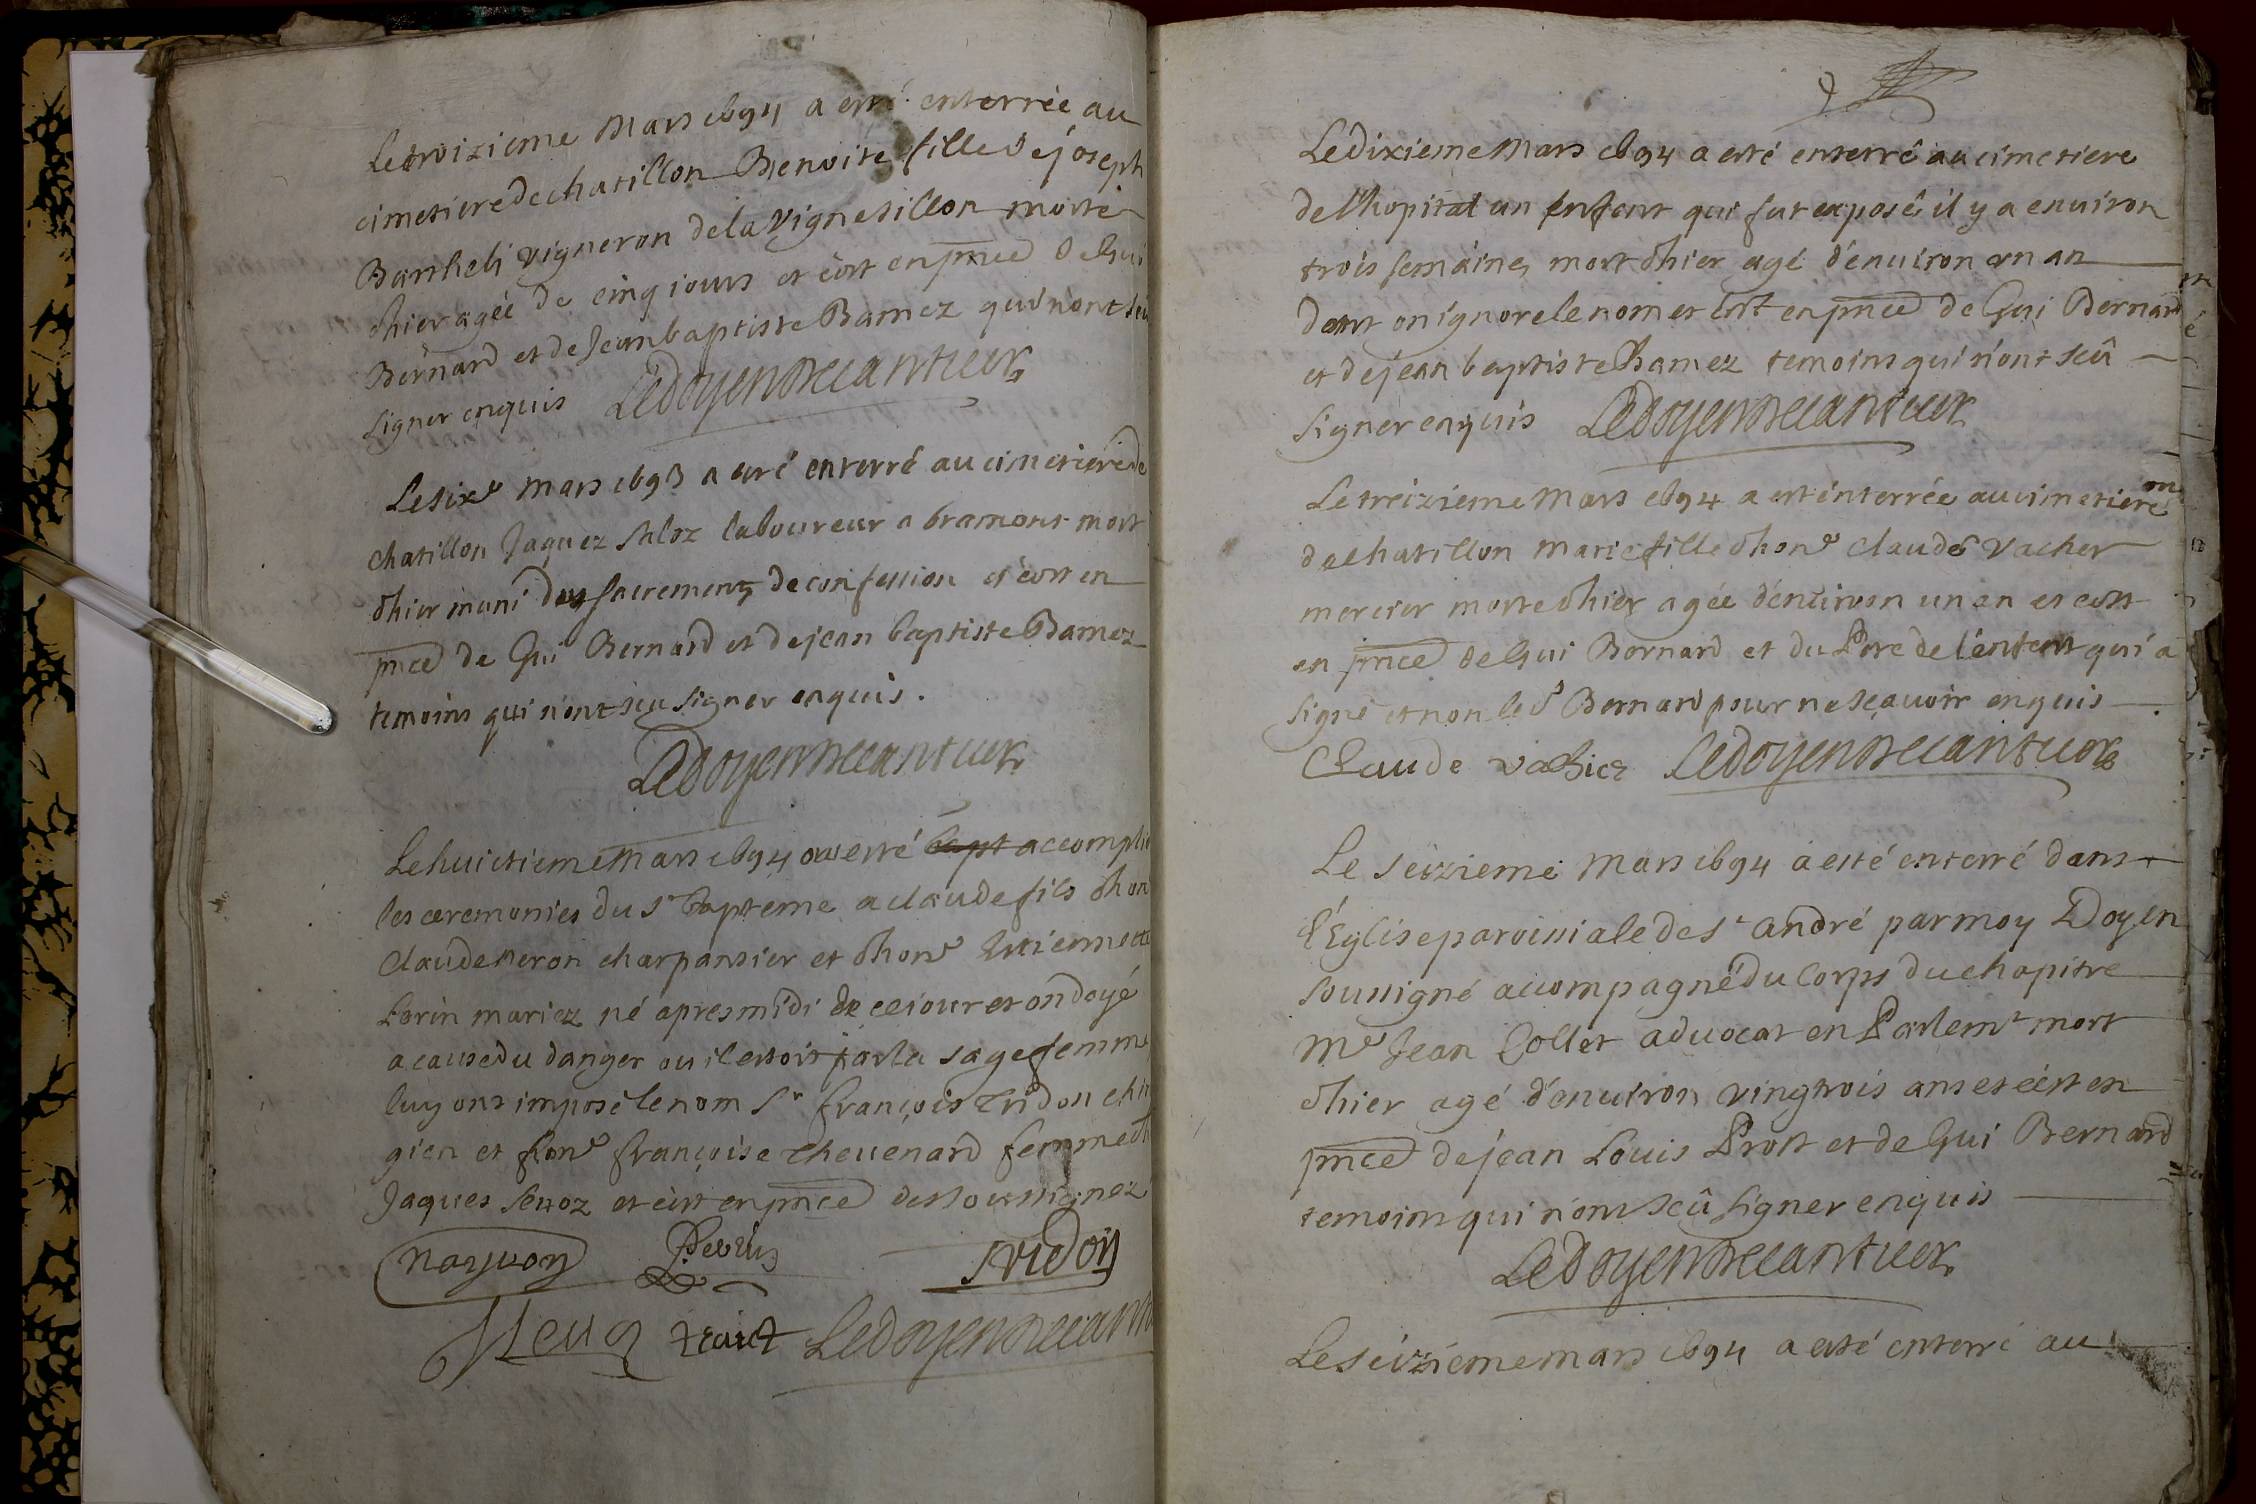 Le troizieme Mars 1694 a esté enterrée au
cimetiere de chatillon Benoite fille de joseph
Bartheli vigneron de la vignesillon morte
dhier agée de cinq iours et cest en pnce de Gui
Bernard et de Jean baptiste Bamez qui n'ont sceu
signer enquis Ledoyen Decantuer
Le six.e Mars 1693 a esté enterré au cimetiere de
chatillon Jaques laboureur a bramont mort
dhier muni des sacrements de confession et c'est en
pnce de Gui Bernard et de jean baptiste Bamez
temoins qui n'ont sceu signer enquis.
Ledoyen Decantuer
Le huictieme Mars 1694 ont esté bapt accomplies
les ceremonies du St bapteme a claude fils dhon
Claude Neron charpantier et dhon.e Estiennette
Perin mariez né apres midi de ce iour et ondoyé
a cause du danger ou il estoit par la sage femme
luy ont imposé le nom Sr françois Tridon chiru
gien et hon.e françoise Thevenard femme
Jaques et c'est en pnce des soussignez
Tridon
Ledoyen Decantu
Le dixieme Mars 1694 a esté enterré au cimetiere
de l'hopital un enfent qui fut exposé il y a enuiron
trois semaines mort dhier agé d'enuiron un an
dont on ignore le nom et c'est en pnce de Gui Bernard
et de jean baptiste Bamez temoins qui n'ont sceû
signer enquis Ledoyen Decantuer
Le treizieme Mars 1694 a esté enterrée au cimetiere
de chatillon Marie fille dhon.e Claude Vacher
mercier morte dhier agée d'enuiron un an et c'est
en pnce de Gui Bernard et du Pere de l'enfent qui a
signé et non led Bernard pour ne sçauoir enquis
Claude vachier Ledoyen Decantuer
Le seizieme Mars 1694 a esté enterré dans
l'Eglise paroissiale de St andré par moy Doyen
soussigné accompagné du Corps du chapitre
M.e Jean Collet aduocat en Parlemt mort
dhier agé d'enuiron vingtrois ans et c'est en
pnce de jean Louis Prost et de Gui Bernard
temoins qui n'ont sceû signer enquis
Ledoyen Decantuer
Le seizieme mars 1694 a esté enterré au